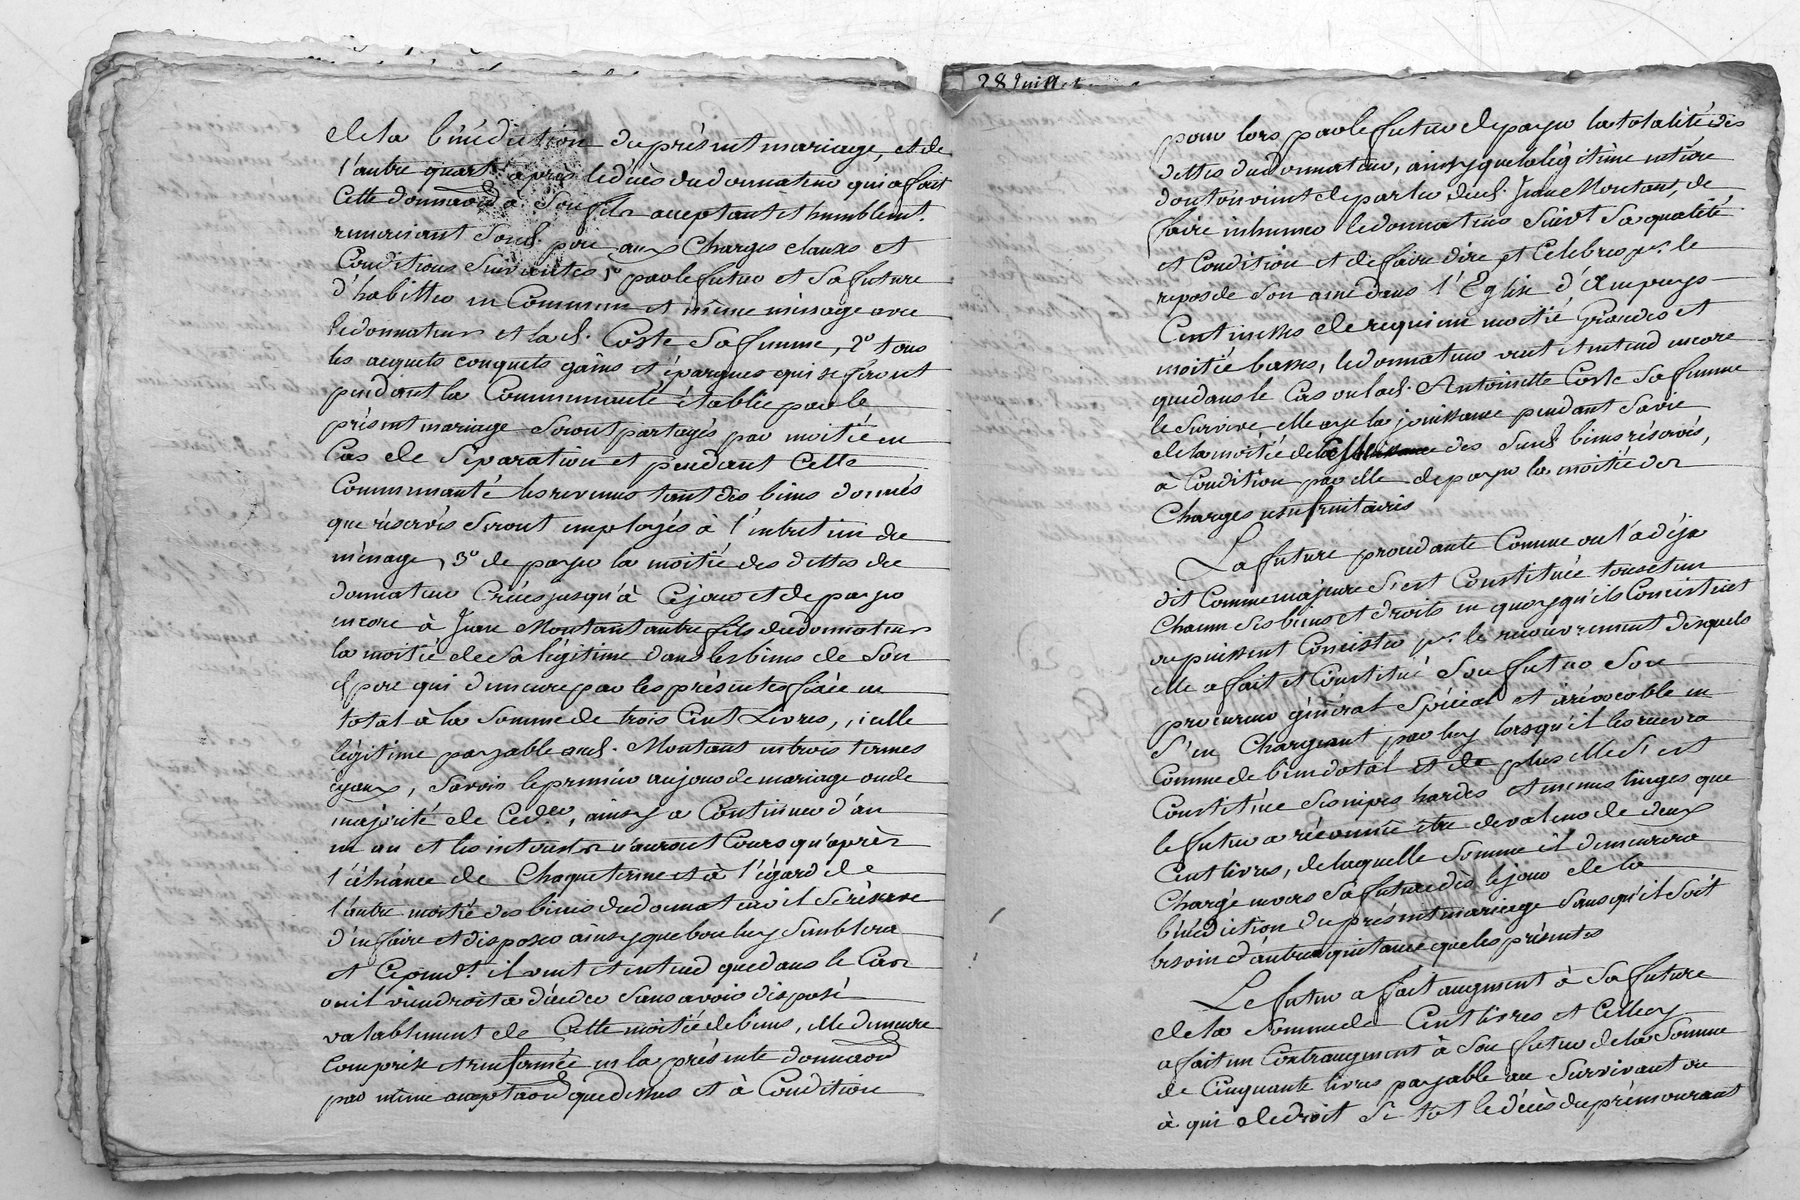 de la bénédiction du présent mariage, et de
l'autre quart après le décès du donnateur qui a fait
Cette donnaôn à Son fils acceptant et humblemt.
remerciant Sond. pere aux Charges clauses et
Conditions Suivantes, 1º par le futur et Sa future
d'habitter en Commun et même ménage avec
le donnateur et la d. Coste Sa femme, 2º tous
les acquets conquets gains et épargnes qui se feront
pendant la Communauté établie par le
présent mariage Seront partagés par moitié en
Cas de Séparation et pendant Cette
Communauté les revenus tant des biens donnés
que réservés Seront employés à l'entretien du
ménage, 3º de payer la moitié des dettes du
donnateur Créés jusqu'à Ce jour et de payer
encore à Jean Montant autre fils du donnateur
la moitié de Sa légitime dans les biens de Son
d pere qui demeure par les présentes fixée en
total à la Somme de trois Cent Livres, icelle
légitime payable aud. Montant en trois termes
égaux, Savoir le premier au jour de mariage ou de
majorité de Ced.er, ainsy a Continuer d'an
en an et les interests n'auront Cours qu'après
l'échéance de Chaque terme et à l'égard de
l'autre moitié des biens du donnateur il Se réserve
d'en faire et disposer ainsy que bon luy Semblera
et Cepend.t il veut et entend que dans le Cas
ou il viendroit a décéder Sans avoir disposé
valablement de Cette moitié de biens, elle demeure
comprise et renfermée en la présente donnaôn
par même acceptaôn que dessus et à Condition
28 Juillet
pour lors par le futur de payer la totalité des
dettes du donnateur, ainsy que la légitime entière
dont on vient de parler dud. Jean Montant, de
faire inhumer le donnateur Suivt Sa qualité
et Condition et de faire dire et Celebrer pr. le
repos de Son ame dans l'Eglise d'Ampuys
Cent messes de requiem moitié Grandes et
moitié basses, le donnateur veut et entend encore
que dans le Cas ou lad. Antoinette Coste Sa femme
le Survive elle aye la jouissance pendant Sa vie
de la moitié de des Susd biens réservés,
à Condition par elle de payer la moitié des
Charges usufruitaires
La future procedante Comme on l'a déja
dit Comme majeure S'est Constituée tous et un
Chacun Ses biens et droits en quoy qu'ils Concistent
ou puissent Concister pr. le recouvrement desquels
elle a fait et Constitué Son futur Son
procureur général Spécial et irrévocable en
S'en Chargeant par luy lorsqu'il les recevra
Comme de bien dotal et de plus elle S'est
Constituée Ses nipes hardes et menus linges que
le futur a réconnu être de valeur de deux
Cent livres, de laquelle Somme il demeurera
Chargé envers Sa future dès le jour de la
bénédiction du présent mariage Sans qu'il Soit
besoin d'autre quittance que les présentes
Le futur a fait augment à Sa future
de la Somme de Cent livres et Celle cy
a fait un Contraugment à Son futur de la Somme
de Cinquante livres payable au Survivant ou
à qui de droit Si tot le décès du prémourant